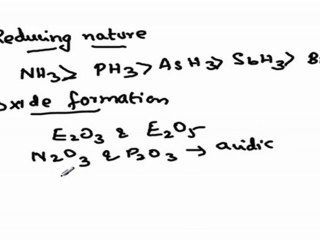 Reducing nature
NH3 > PH3 > AsH3 > SbH3 > B
oxide formation
E2O3 & E2O5
N2O3 & P2O3 → acidic